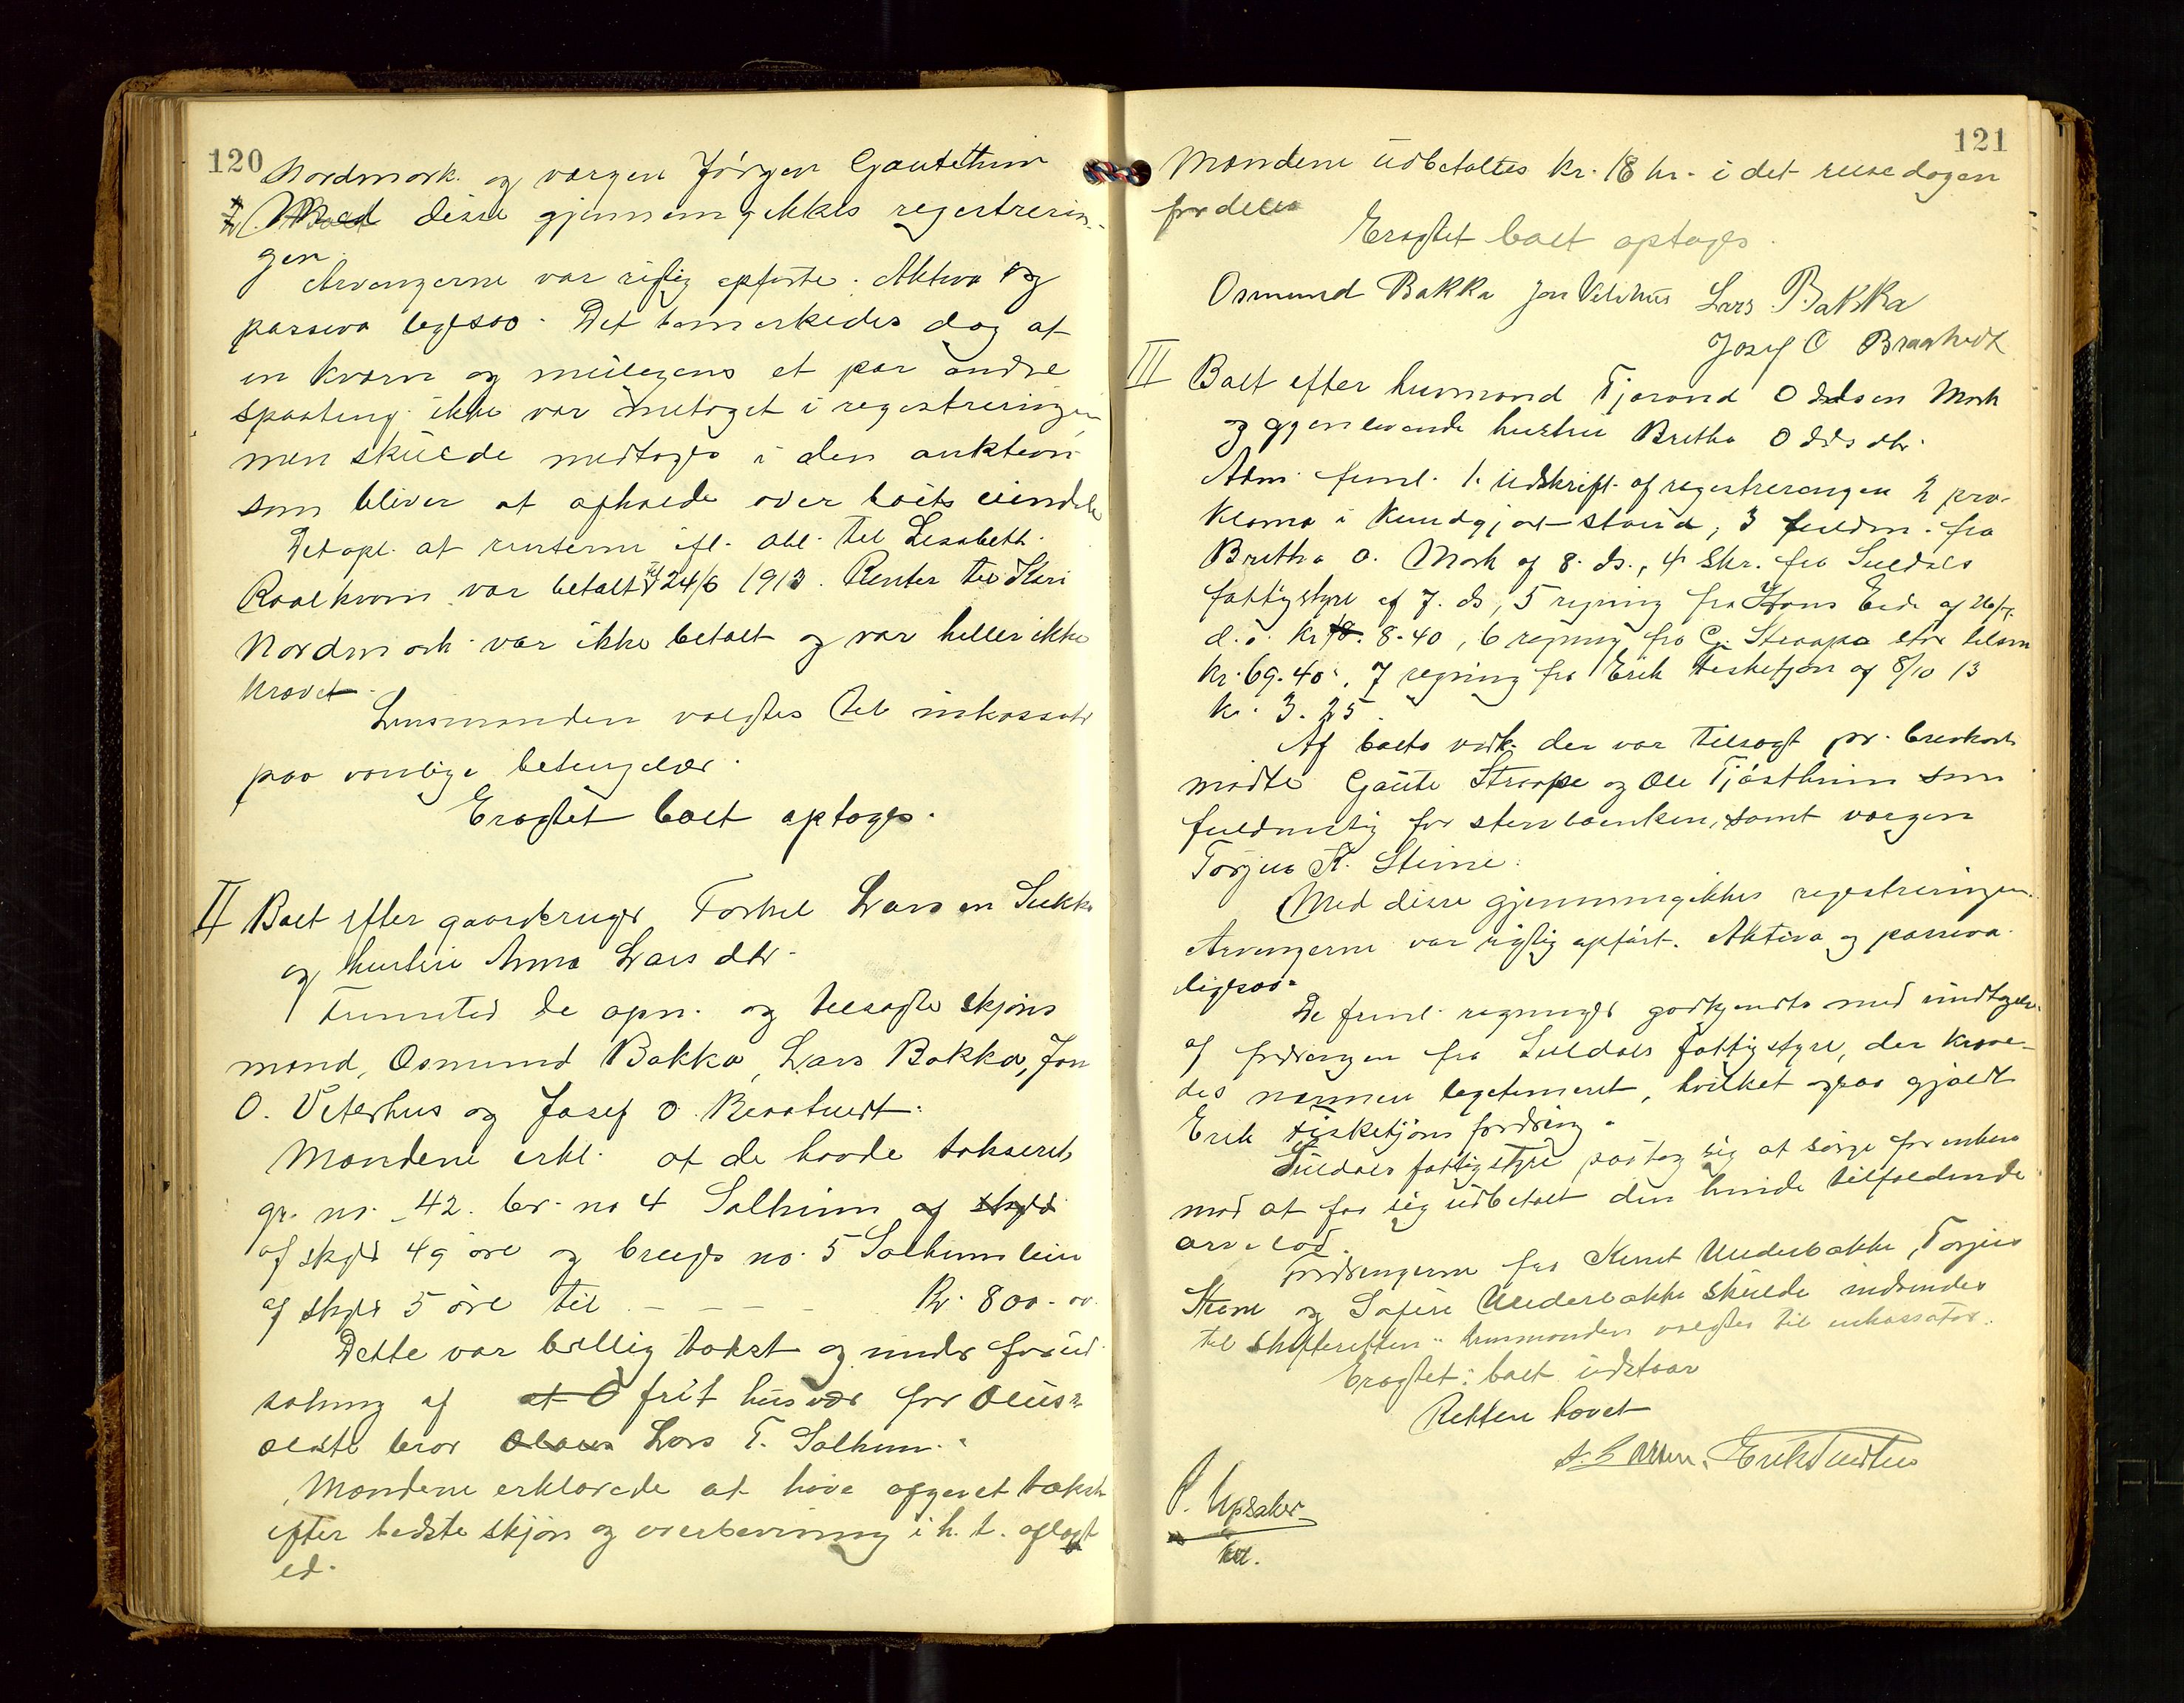 120
Nordmork. og vergen Jørgen Gautetun
Med disse gjennemgikkes registrerin-
gen.
Arvingerne var rigtig opførte. Aktiva og
passiva ligesaa. Det bemerkedes dog at
en kvern og muligens et par andre
smaating ikke var medtaget i registreringen
men skulde medtages i den auktion
som bliver at afholde over boets eiendele
Det opl. at renterne ifl. obl. til Lisabeth
Roalkvam var betalt til 24/6 1913. Renter til Keri
Nordmork var ikke betalt og var heller ikke
krævet.
Lensmanden valgtes til inkassator
paa vanlige betingelser.
Eragtet boet optages.
II Boet efter gaardbruger Torkel Larsen
og hustru Anna Larsdtr.
Fremsted de opn. og tilsagte skjøns
mænd, Osmund Bakka, Lars Bakka, Jon
O. Veterhus og Josef O.
Mændene erkl. at de havde takseret
gr. no. 42. br. no 4 Solheim af skyld
af skyld 49 øre og brugs no. 5 Solheimslien
af skyld 5 øre til - - - - Kr. 800.00.
Dette var billig takst og under forud
sætning af at O frit husvær for
ældste bror Olaus Lars T. Solheim.
Mændene erklærede at have afgivet takst
efter bedste skjøn og overbevisning i h. t. aflagt
ed.
121
Mændene udbetaltes kr. 18 hr. i det reisedagen
fordeles
Eragtet boet optages.
Osmund Bakka Jon Vetrhus Lars Bakka
Josef O
III Boet efter husmand Tjerand Oddsen Mork
og gjenlevende hustru Bretha Oddsdtr.
Adm. freml. 1. udskrift af registreringen 2 pro-
klama i kundgjort stand, 3 fuldm. fra
Bretha O. Mork af 8. ds., 4 Skr. fra Suldals
fattigstyre af 7. ds, 5 regning fra Hans Eide af 26/9.
d. å. kr. 8.40, 6 regning fra G. Straapa etc tilsm
kr. 69.40. 7 regning fra Erik Fisketjøn af 8/10 13
kr. 3.25.
Af boets vedk. der var tilsagt pr. brevkort
mødte Gaute Straape og Ole Tjøstheim som
fuldmegtig for sterboenken, samt vergen
Torjus K. Steine.
Med disse gjennemgikkes registreringen.
Arvingerne var rigtig opført. Aktiva og passiva
ligesaa.
De freml. regninger godkjendts med undtagelse
af fordringen fra Suldals fattigstyre, der kræve-
des nærmere legitimeret, hvilket ogsaa gjaldt
Erik Fisketjøns fordring.
Suldals fattigstyre paatog sig at sørge for enken
mod at faa sig udbetalt den hende tilfaldende
arvelod.
Fordringerne fra Knut Underbakke, Torjus
Steine og Underbakke skulde indsendes
til skifteretten. Lensmanden valgtes til inkassator.
Eragtet: boet udstaar
Retten hævet